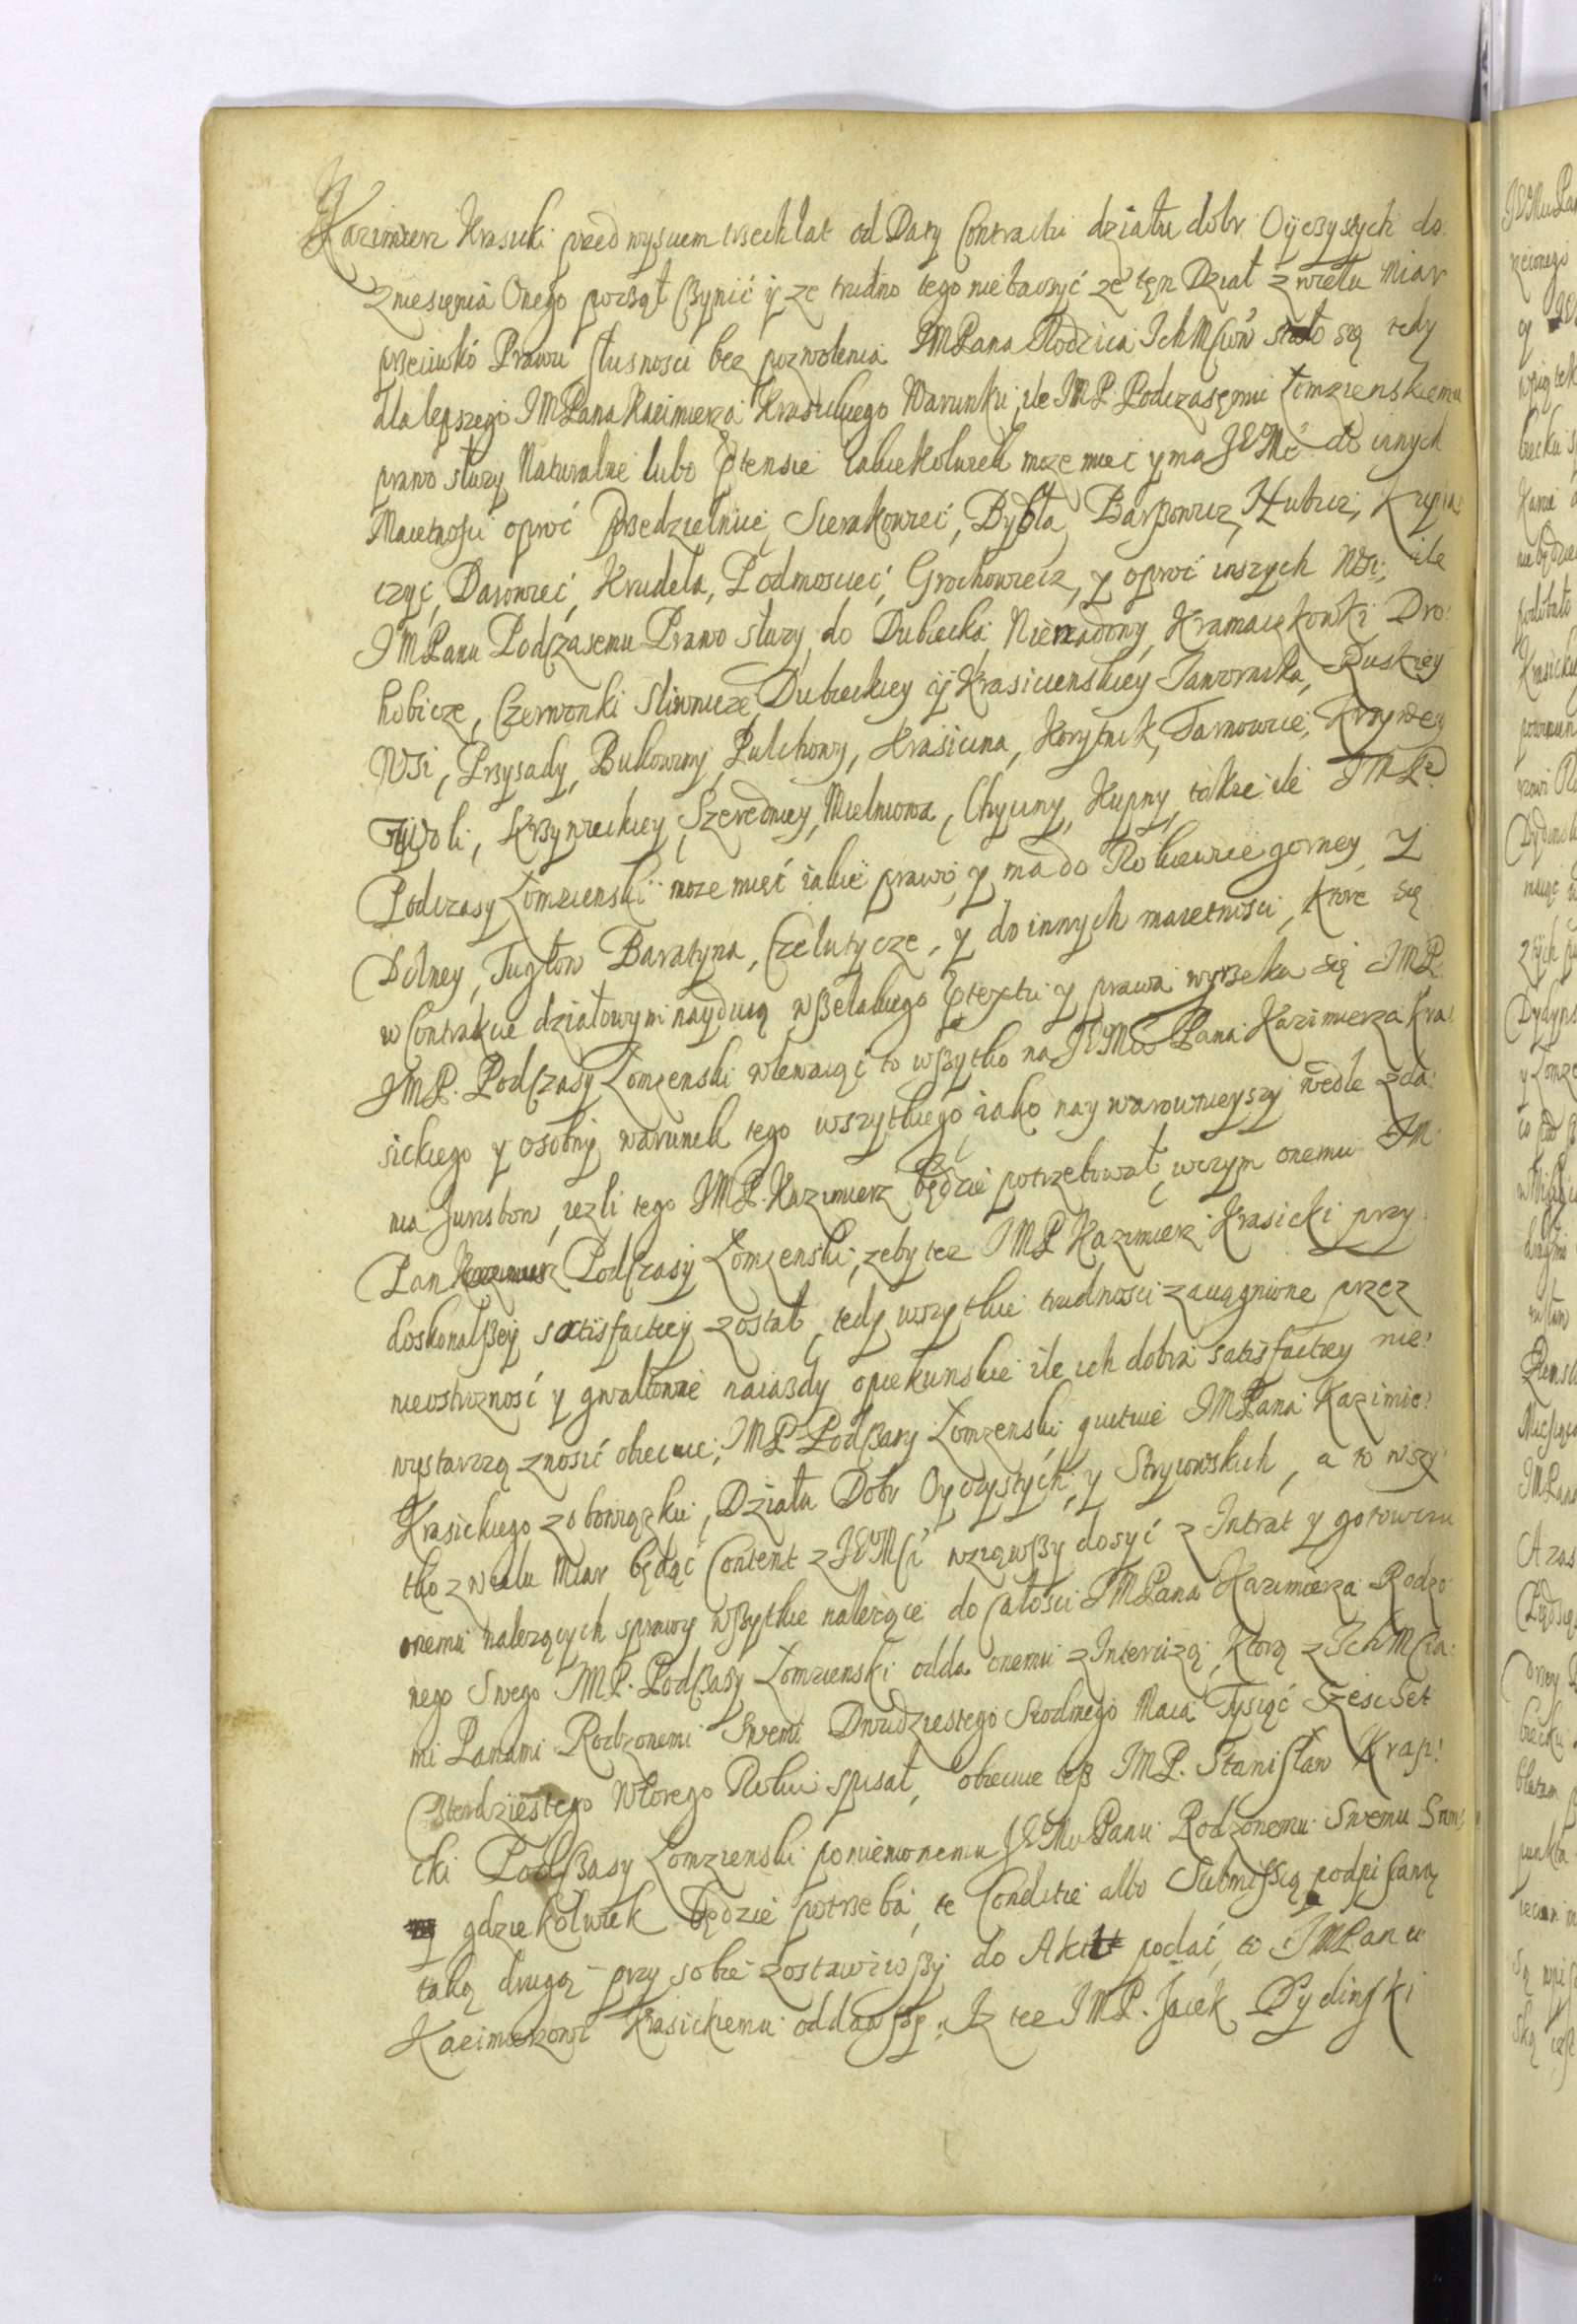 Kazimierz Krasicki przed wysciem trzech lat od Daty Contractu działu dobr Oyczystych do
zniesięnia Onego począł czynić y ze trudno tego niebaczyć ze tęn Dział z wielu miar
przeciwko Prawu słusnosci bez pozwolenia JMPana Rodzica Ich Mściow stało się tedy
dla lepszego JMPana Kazimierza Krasickiego Warunku, ile JMP. Podczasęmu Łomzenskiemu
prawo słuzy Naturalne lubo Ptensie iakiekolwiek moze miec y ma JEMć do innych
Maiętnosci oproć Posedzielnice, Sierakowiec, Bybła, Barszowicz, Hubicz, Kupia
czyc, Darowiec, Krudela, Podmosciec, Grochowiecz, y oproć inszych Wsi, ile
JMPanu Podczasemu Prawo słuzy do Dubiecka, Nienadowy, Kramarzkowki Dro
hobicze, Czerwonki Sliwnicze, Dubieckiey y Krasicienskiey Jawornika, Ruskiey
Wsi, Przysady, Bukowiny, Pulchowy, Krasiczina, Korytnik, Tarnowce, Krzywey
Woli, Krzywieckiey, Szeredniey, Mielnowa, Chyrzny, Kupny, takze ile JMP
Podczasy Łomzienski moze mięć iakie prawo, y ma do Rokiewie gorney y
Dolney, Tugłow Baratyna, Czelutycze, y do innych maietnosci, ktore się
w Contrakcie działowym nayduią wszelakiego Ptextu y prawa wyrzeka się JMP.
JMP. Podczasy Łomzenski wlewaiąc to wszytko na JEMści Pana Kazimierza Kra
sickiego y osobny warunek tego wszytkiego iako naywarownieyszy wedle zda
nia Juristow, iezli tego JMP. Kazimierz będzie potrzebował, wczym onemu JM
Pan Podczasy Łomzenski, zeby tez JMP Kazimierz Krasicki przy
doskonalszey satisfactiey został, tedy wszytkie trudnosci zaciągnione przez
nieostrozność y gwałtowne naiazdy opiekunskie ile ich dobra satisfactiey nie
wystarczą znosić obiecuie, JMP. Podczasy Łomzenski quituie JMPana Kazimie
Krasickiego z obowiązku, Działu Dobr Oyczystych, y Stryiowskich, a to wszy
tko z wielu Miar będąc Content z JEMści wziąwszy dosyć z Intrat y gotowizn
onemu nalezących sprawy wszytkie nalezące do całosci JMPana Kazimierza Rodzo
nego Swego JMP. Podczasy Łomzienski odda onemu z Intercizą, ktorą z Ich Mścia
mi Panami Rodzonemi Swemi Dwudziestego Siodmego Maia Tysiąc Szescset
Czterdziestego Wtorego Roku spisał, obiecuie tesz JMP. Stanisław Krasi
cki Podczasy Łomzienski pomienionemu JEMści Panu Rodzonemu Swemu
gdziekolwiek będzie potrzeba, te Conditie albo Submissią podpisaną
taką drugą przy sobie zostawiwszy do Akt podać, to JMPanu
Kazimierzowi Krasickiemu oddawszy. Iz tez JMP. Jacek Dydinski